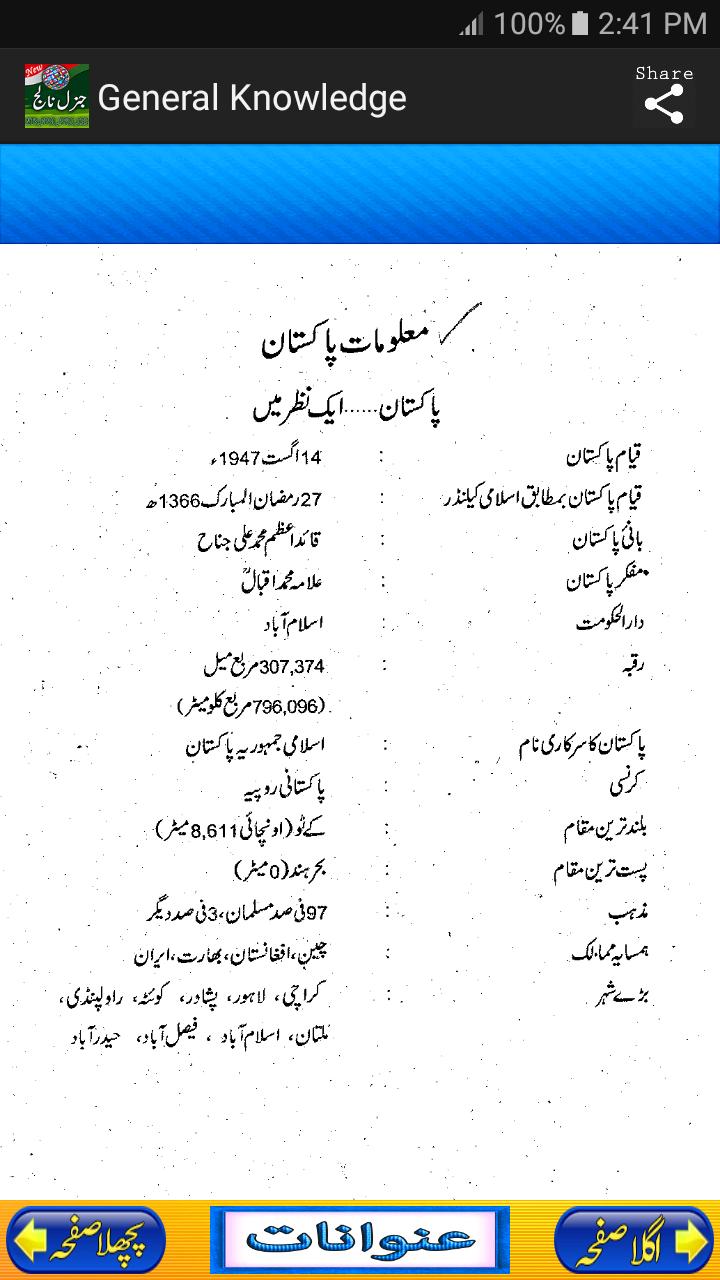 100% 2:41 PM
New
جنرل نالج
General Knowledge
Share
معلومات پاکستان
پاکستان......ایک نظر میں
قیام پاکستان : 14 اگست 1947ء
قیام پاکستان بمطابق اسلامی کیلنڈر : 27 رمضان المبارک 1366ھ
بانیٔ پاکستان : قائداعظم محمد علی جناح
مفکر پاکستان : علامہ محمد اقبالؒ
دارالحکومت : اسلام آباد
رقبہ : 307,374 مربع میل
(796,096 مربع کلومیٹر)
پاکستان کا سرکاری نام : اسلامی جمہوریہ پاکستان
کرنسی : پاکستانی روپیہ
بلند ترین مقام : کے ٹو (اونچائی 8,611 میٹر)
پست ترین مقام : بحر ہند (0 میٹر)
مذہب : 97 فی صد مسلمان، 3 فی صد دیگر
ہمسایہ ممالک : چین، افغانستان، بھارت، ایران
بڑے شہر : کراچی، لاہور، پشاور، کوئٹہ، راولپنڈی،
ملتان، اسلام آباد، فیصل آباد، حیدر آباد
اگلا صفحہ
عنوانات
پچھلا صفحہ